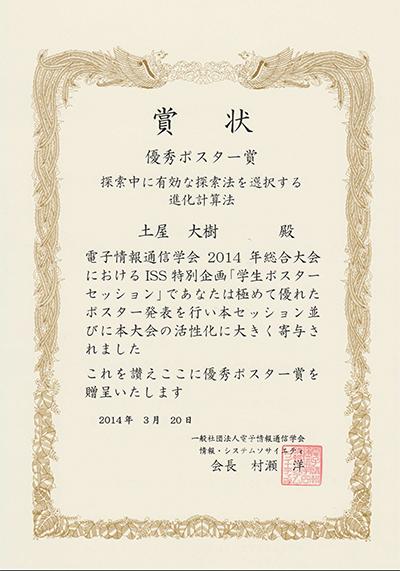 賞状
優秀ポスター賞
探索中に有効な探索法を選択する
進化計算法
土屋 大樹 殿
電子情報通信学会 2014 年総合大会
における ISS 特別企画「学生ポスター
セッション」であなたは極めて優れた
ポスター発表を行い本セッション並
びに本大会の活性化に大きく寄与さ
れました
これを讃えここに優秀ポスター賞を
贈呈いたします
2014年 3月 20日
一般社団法人電子情報通信学会
情報・システムソサイエティ
会長 村瀬 洋